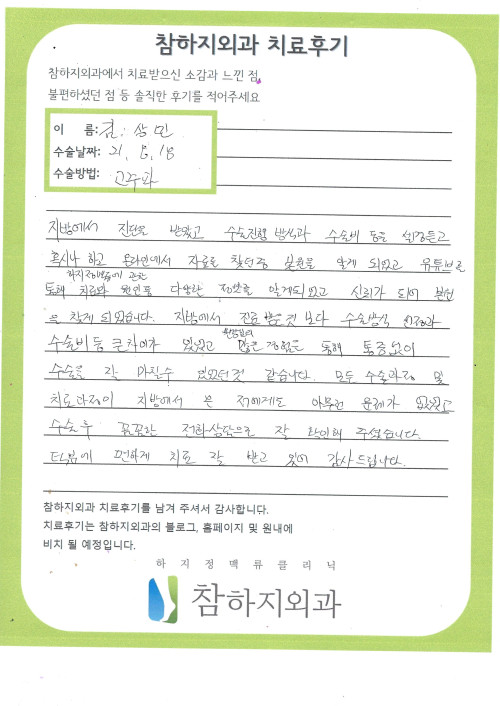 참하지외과 치료후기
참하지외과에서 치료받으신 소감과 느낀 점,
불편하셨던 점 등 솔직한 후기를 적어주세요
이 름: 김 상 민
수술날짜: 21. 8. 18
수술방법: 고주파
지방에서 진단을 받았고 수술진행 방식과 수술비 등을 설명듣고
혹시나 하고 온라인에서 자료를 찾던중 본원을 알게 되었고 유튜브를
하지정맥류에 관한
통해 치료와 원인등 다양한 정보를 알게되었고 신뢰가 되어 본원
을 찾게 되었습니다. 지방에서 진료 받은것 보다 수술방식
수술비등 큰차이가 있었고 많은 경험을 통해 통증없이
수술을 잘 마칠수 있었던것 같습니다. 모든 수술과정 및
치료과정이 지방에서 온 저에게도 아무런 문제가 없었고
수술후 꼼꼼한 전화상담으로 잘 확인해 주셨습니다.
덕분에 편하게 치료 잘 받고 있어 감사드립니다.
참하지외과 치료후기를 남겨 주셔서 감사합니다.
치료후기는 참하지외과의 블로그, 홈페이지 및 원내에
비치 될 예정입니다.
하지정맥류클리닉
참하지외과